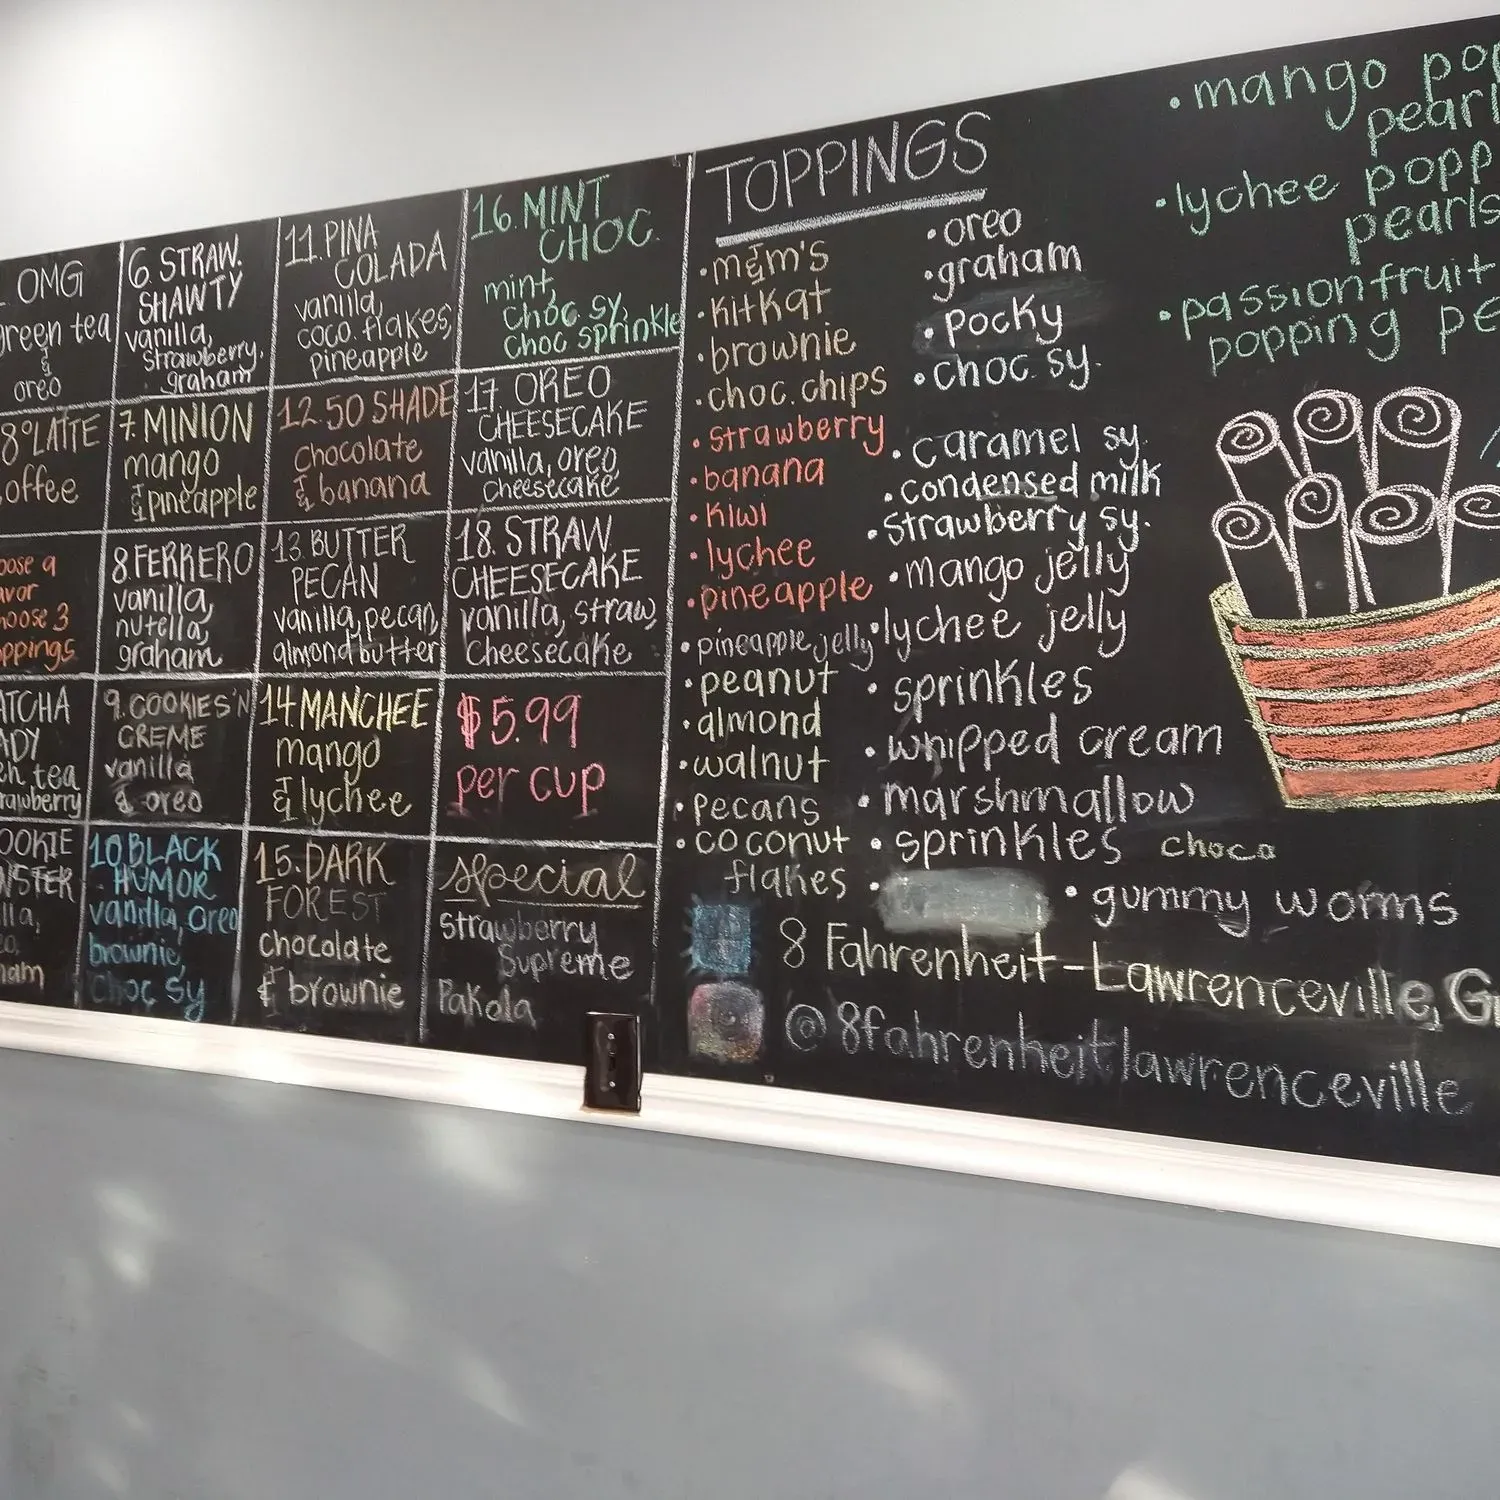 OMG
green tea
&
oreo
8° LATTE
3
ppings
tea
10. BLACK
HUMOR
vanilla, oreo
brownie,
choc sy
6. STRAW.
SHAWTY
vanilla,
strawberry,
graham
7. MINION
mango
& pineapple
8. FERRERO
vanilla,
nutella,
graham
9. COOKIES 'N
CREME
vanilla
& oreo
11. PINA
COLADA
vanilla,
coco. flakes,
pineapple
12. 50 SHADE
chocolate
& banana
13 BUTTER
PECAN
vanilla, pecan,
almond butter
14. MANCHEE
mango
& lychee
15. DARK
FOREST
chocolate
& brownie
16. MINT
CHOC.
mint,
choc sy,
choc sprinkle
17. OREO
CHEESECAKE
vanilla, oreo,
cheesecake
18. STRAW.
CHEESECAKE
vanilla, straw,
cheesecake
$5.99
per cup
Special
strawberry
Supreme
Pakola
TOPPINGS
• m&m's
• kitkat
• brownie
• choc. chips
• strawberry
• banana
• kiwi
• lychee
• pineapple
• pineapple jelly
• peanut
• almond
• walnut
• pecans
• coconut
flakes
• oreo
• graham
• pocky
• choc. sy.
• caramel sy.
• condensed milk
• strawberry sy.
• mango jelly
• lychee jelly
• sprinkles
• whipped cream
• marshmallow
• sprinkles choco
• gummy worms
• mango pop
pearl
• lychee popp
pearls
• passionfruit
popping pe
8 Fahrenheit - Lawrenceville, G
@8fahrenheitlawrenceville